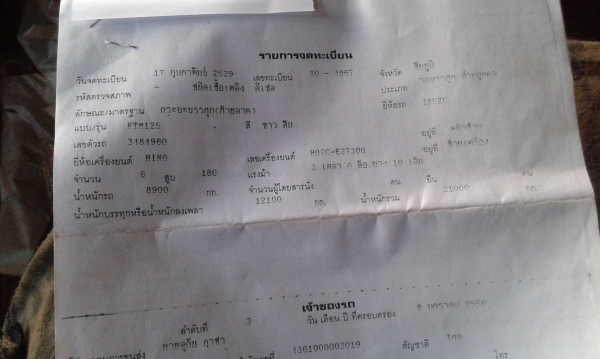 รายการจดทะเบียน
วันจดทะเบียน 17 กุมภาพันธ์ 2529 เลขทะเบียน 80 - 4967 จังหวัด ชัยภูมิ
รหัสตรวจสภาพ - ชนิดเชื้อเพลิง ดีเซล ประเภท
ลักษณะ/มาตรฐาน กระบะบรรทุก(ท้ายลาด) ยี่ห้อรถ ISUZU
แบบ/รุ่น FTM12S สี ขาว ส้ม
เลขตัวรถ 3484960 อยู่ที่
ยี่ห้อเครื่องยนต์ HINO เลขเครื่องยนต์ H07C-E27300 อยู่ที่
จำนวน 6 สูบ 180 แรงม้า 3 เพลา 6 ล้อ ยาง 10 เส้น
น้ำหนักรถ 8900 กก. จำนวนผู้โดยสารนั่ง คน ยืน คน
น้ำหนักบรรทุกหรือน้ำหนักลงเพลา 12100 กก. น้ำหนักรวม 21000 กก.
เจ้าของรถ
ลำดับที่ 3 วัน เดือน ปี ที่ครอบครอง
สัญชาติ ไทย